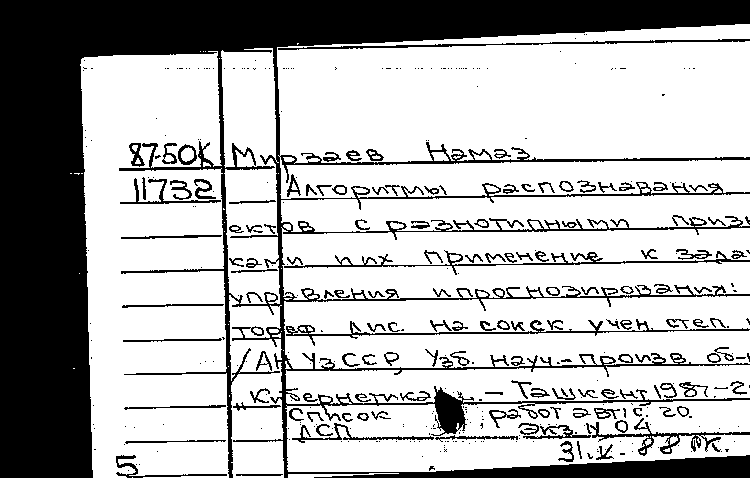 87-50К Мирзаев Намаз
11732 Алгоритмы распознавания
ектов с разнотипными призн
ками и их применение к зада
управления и прогнозирования:
тореф. дис. на соиск. учен. степ.
/АН УзССР, Узб. науч.-произв. об-
"Кибернетика". - Ташкент, 1987.-2
Список работ авт. с. 20.
ДСП Экз. N 04
31.V.88 РК.
5